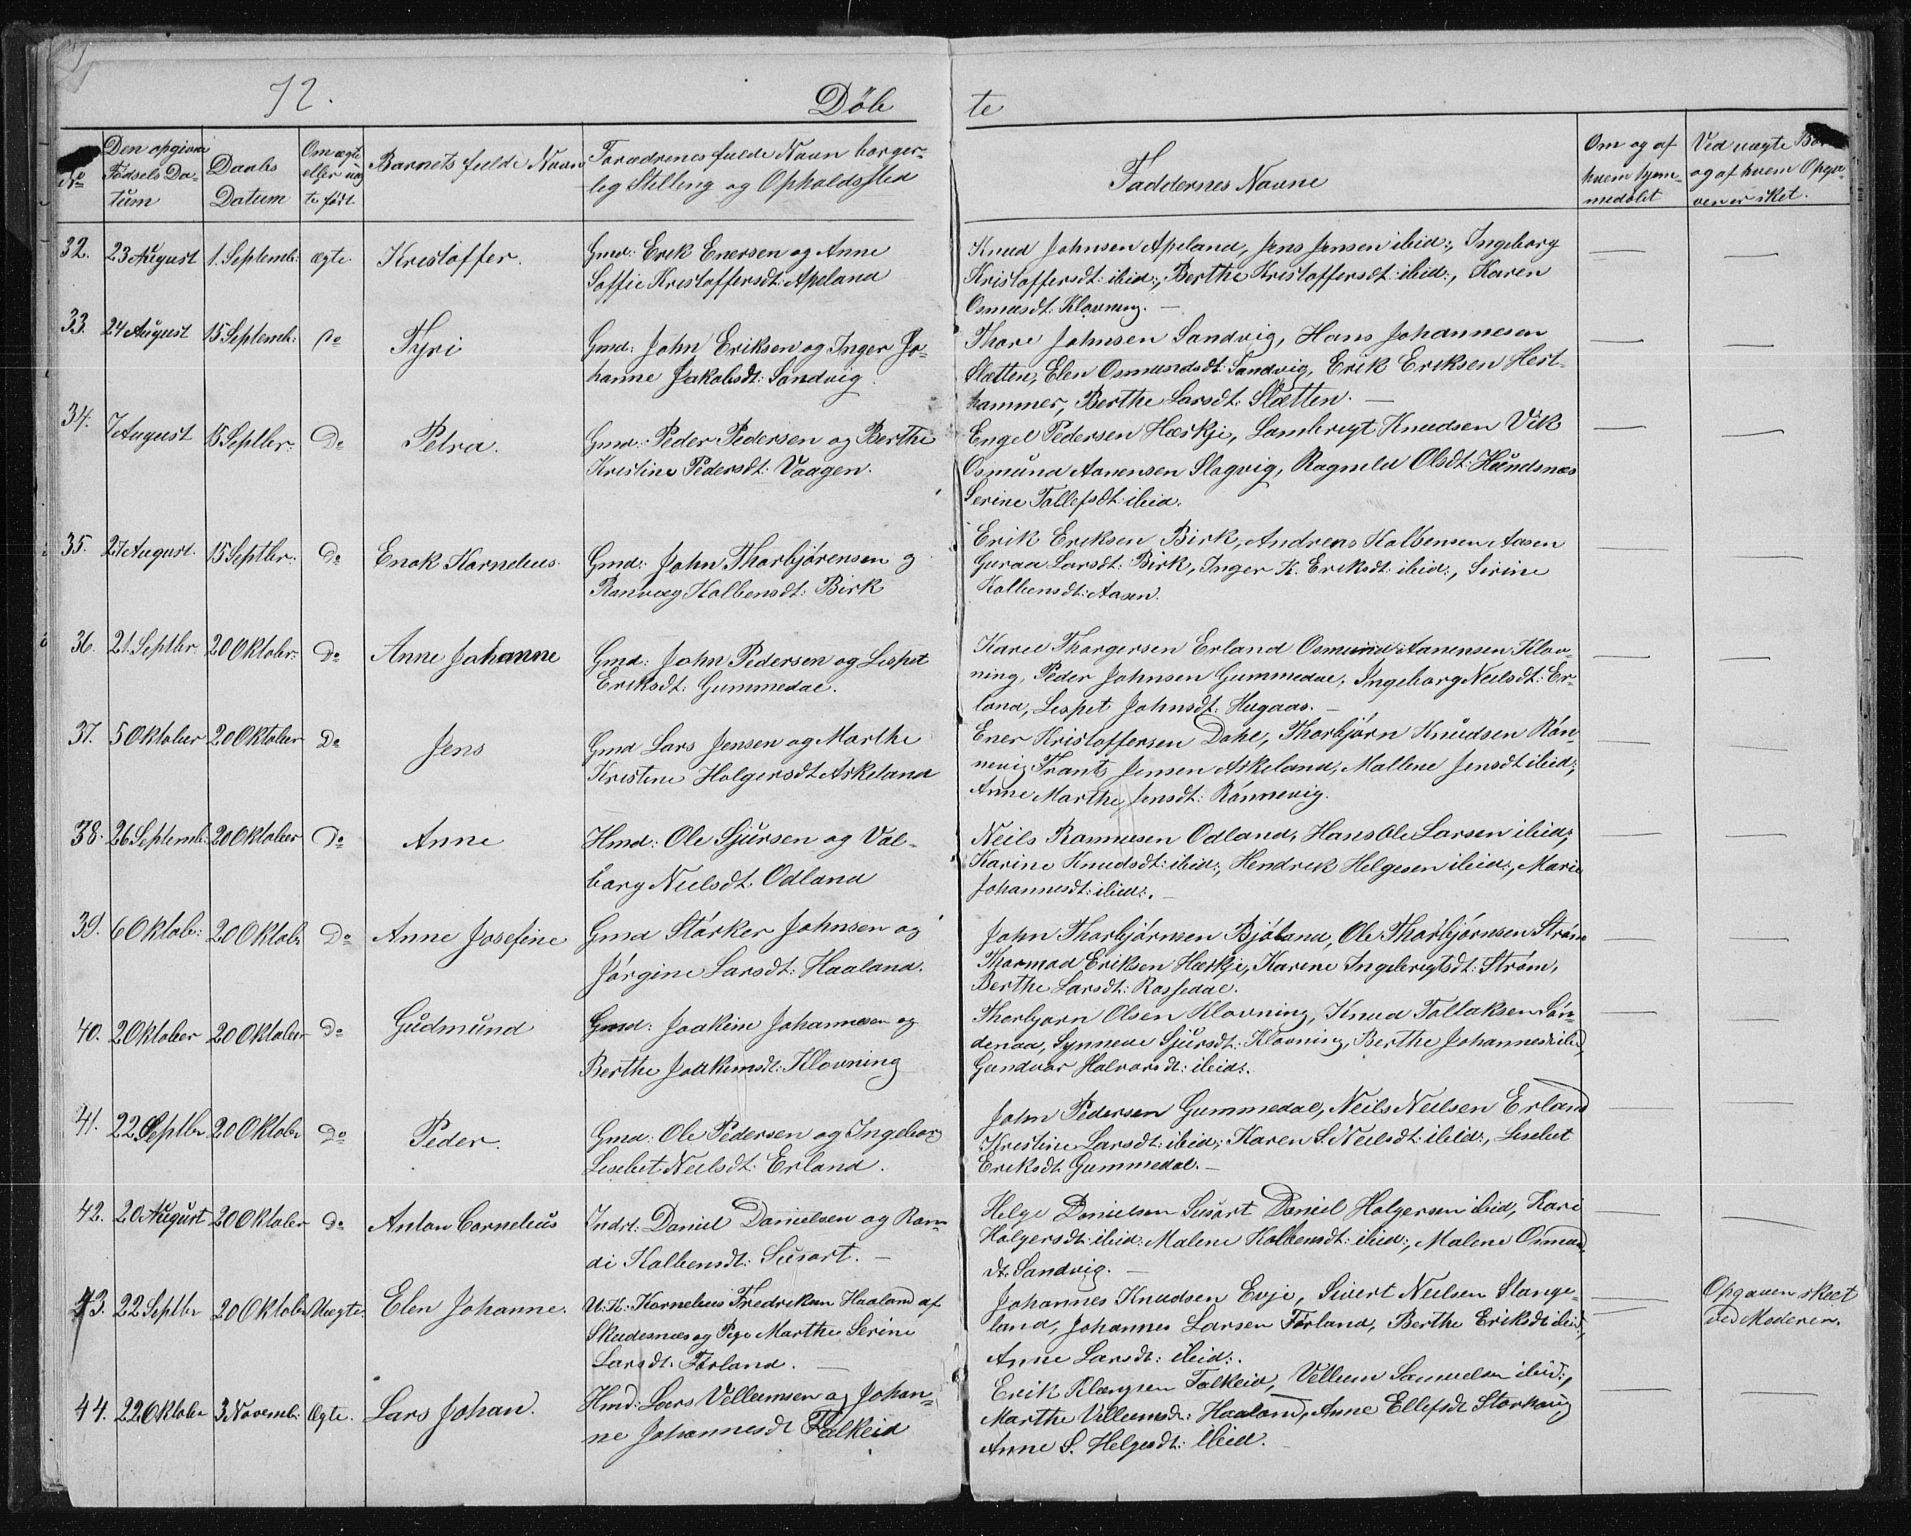 72.
Döb te
No
Den opgivne Fødsels Da- tum
Daabs Datum
Om ægte eller uæg te født
Barnets fulde Navn
Forædrenes fulde Navn borger- lig Stilling og Opholdssted
Faddernes Navne
Om og af hvem hjem- medøbt
Ved uægte Børn og af hvem Opgi- ven er sket.
32. 23 August 1. Septemb: ægte. Kristoffer.
Gmd: Erik Enersen og Anne
Soffie Kristoffersdt: Apeland
Knud Johnsen Apeland, Jens Jensen ibid:, Ingeborg
Kristoffersdt: ibid:, Berthe Kristoffersdt: ibid:, Karen
Osmundsdt: Klovning. —
33. 24 August 15 Septemb: Do Tyri
Gmd: John Eriksen og Inger Jo-
hanne Jakobsdt: Sandvig.
Thore Johnsen Sandvig, Hans Johannesen
Slætten, Elen Osmundsdt: Sandvig, Erik Eriksen Hest-
hammer, Berthe Larsdt: Slætten. —
34. 7 August 15 Septbr: Do Petra.
Gmd: Peder Pedersen og Berthe
Kristine Pedersdt: Vaagen.
Engel Pedersen Hæskje, Lambregt Knudsen Vik
Osmund Aanensen Slogvig, Ragnild Olsdt: Hundsnæs
Serine Tollefsdt: ibid.
35. 27 August. 15 Septbr: Do Enok Kornelius.
Gmd: John Thorbjørensen og
Ranvæg Kolbensdt: Birk
Erik Eriksen Birk, Andreas Kolbensen Aasen
Guraa Larsdt: Birk, Inger K. Eriksdt: ibid:, Sirine
Kolbensdt: Aasen.
36. 21. Septbr. 20 Oktober: Do Anne Johanne
Gmd: John Pedersen og Lispet
Eriksdt: Gummedal.
Karie Thorgersen Erland Osmund Aanensen Klov-
ning, Peder Johnsen Gummedal, Ingeborg Neilsdt: Er-
land, Lispet Johnsdt: Hugaas. —
37. 5 Oktober 20 Oktober Do Jens
Gmd Lars Jensen og Marthe
Kristine Holgersdt Askeland
Ener Kristoffersen Dahl, Thorbjørn Knudsen Røn-
nevig Frants Jensen Askeland, Mallene Jensdt ibid:,
Anne Marthe Jensdt: Rønnevig.
38. 26 Septemb: 20 Oktober Do Anne
Hmd: Ole Sjursen og Val-
borg Nielsdt. Odland
Neils Rasmusen Odland, Hans Ole Larsen ibid;
Karine Knudsdt: ibid:, Hendrik Helgesen ibid:, Marie
Johannesdt: ibid:. —
39. 6 Oktob: 20 Oktob: Do Anne Josefine
Gmd Størker Johnsen og
Jörgine Larsdt: Haaland.
John Thorbjørnsen Bjöland, Ole Thorbjørnsen Strøm
Thormod Eriksen Hæskje, Karine Ingebrigtsdt: Strøm,
Berthe Larsdt: Rossedal.
40. 2 Oktober 20 Oktober Do Gudmund
Gmd: Joakim Johannesen og
Berthe Joakimsdt: Klovning
Thorbjørn Olsen Klovning, Knud Tollaksen Søn-
denaa, Synneve Sjursdt: Klovning, Berthe Johannesdt ibid,
Gundvor Halvorsdt: ibid:.
41. 22 Septbr 20 Oktobr Do Peder.
Gmd: Ole Pedersen og Ingeborg
Lisebet Neilsdt: Erland.
John Pedersen Gummedal, Neils Neilsen Erland
Kristine Larsdt: ibid; Karen S. Neilsdt: ibid:, Lisebet
Eriksdt Gummedal. —
42. 20 August 20 Oktober Do Anton Cornelius
Indrt: Daniel Danielsen og Ran-
di Kolbensdt: Susort. —
Helge Danielsen Susort Daniel Holgersen ibid, Kari
Holgersdt: ibid: Malene Kolbensdt: ibid:, Malene Osmund
dt: Sandvig. —
43. 22 Septbr 20 Oktober Uægte. Elen Johanne.
U.K: Kornelius Fredriksen Haaland af
Skudesnæs og Pige Marthe Serine
Larsdt. Førland. —
Johannes Knudsen Evje, Sivert Nielsen Stange-
land, Johannes Larsen Førland, Berthe Eriksdt ibid:,
Anne Larsdt: ibid:.
Opgaven skeet
ved Moderen.
44. 22 Oktober 3 Novemb: Ægte. Lars Johan.
Hmd: Lars Velleumsen og Johan-
ne Johannesdt Falkeid
Erik Klængsen Falkeid, Vellum Samuelsen ibid:,
Marthe Velleumsdt: Haaland, Anne Ellefsdt Storhaug
Anne S. Helgesdt: ibid.